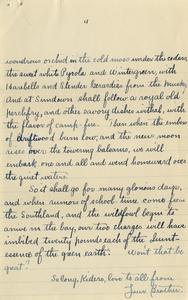 4
wondrous orchid in the cold moss under the cedars,
the sweet white Pyrola and Wintergreen, with
Harebells and slender Gerardias from the Muskeg.
And at Sundown shall follow a royal old
perchfry, and other savory dishes withal, with
the flavor of camp-fire. Then when the embers
of driftwood burn low, and the new moon
rises over the towering balsams, we will
embark one and all and wend homeward over
the quiet waters.
So it shall go for many glorious days,
and when rumors of school time come from
the Southland, and the wildfowl begin to
arrive in the bay, our two charges will have
imbibed twenty pounds each of the Quint-
essence of the green earth. Won't that be
great!
So long, Kidero, love to all from
Your Brother